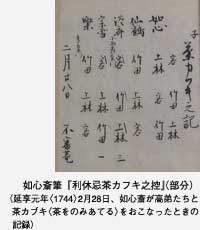 茶カフキ之記
如心 竹田 上林
仙鶴 上林 竹田
竹田 上林
宗雪 竹田 上林
樂 竹田
二月廿八日 不審菴
如心斎筆『利休忌茶カフキ之控』(部分)
(延享元年〈1744〉2月28日、如心斎が高弟たちと
茶カブキ(茶をのみあてる)をおこなったときの
記録)